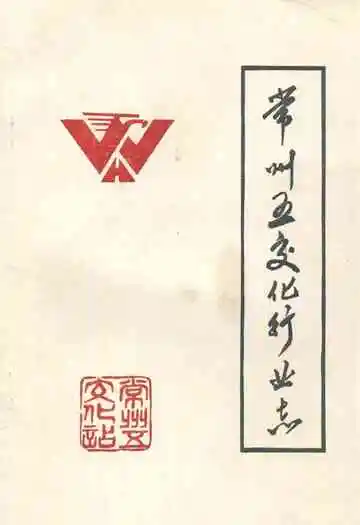 常州五交化行业志
常州五
交化站